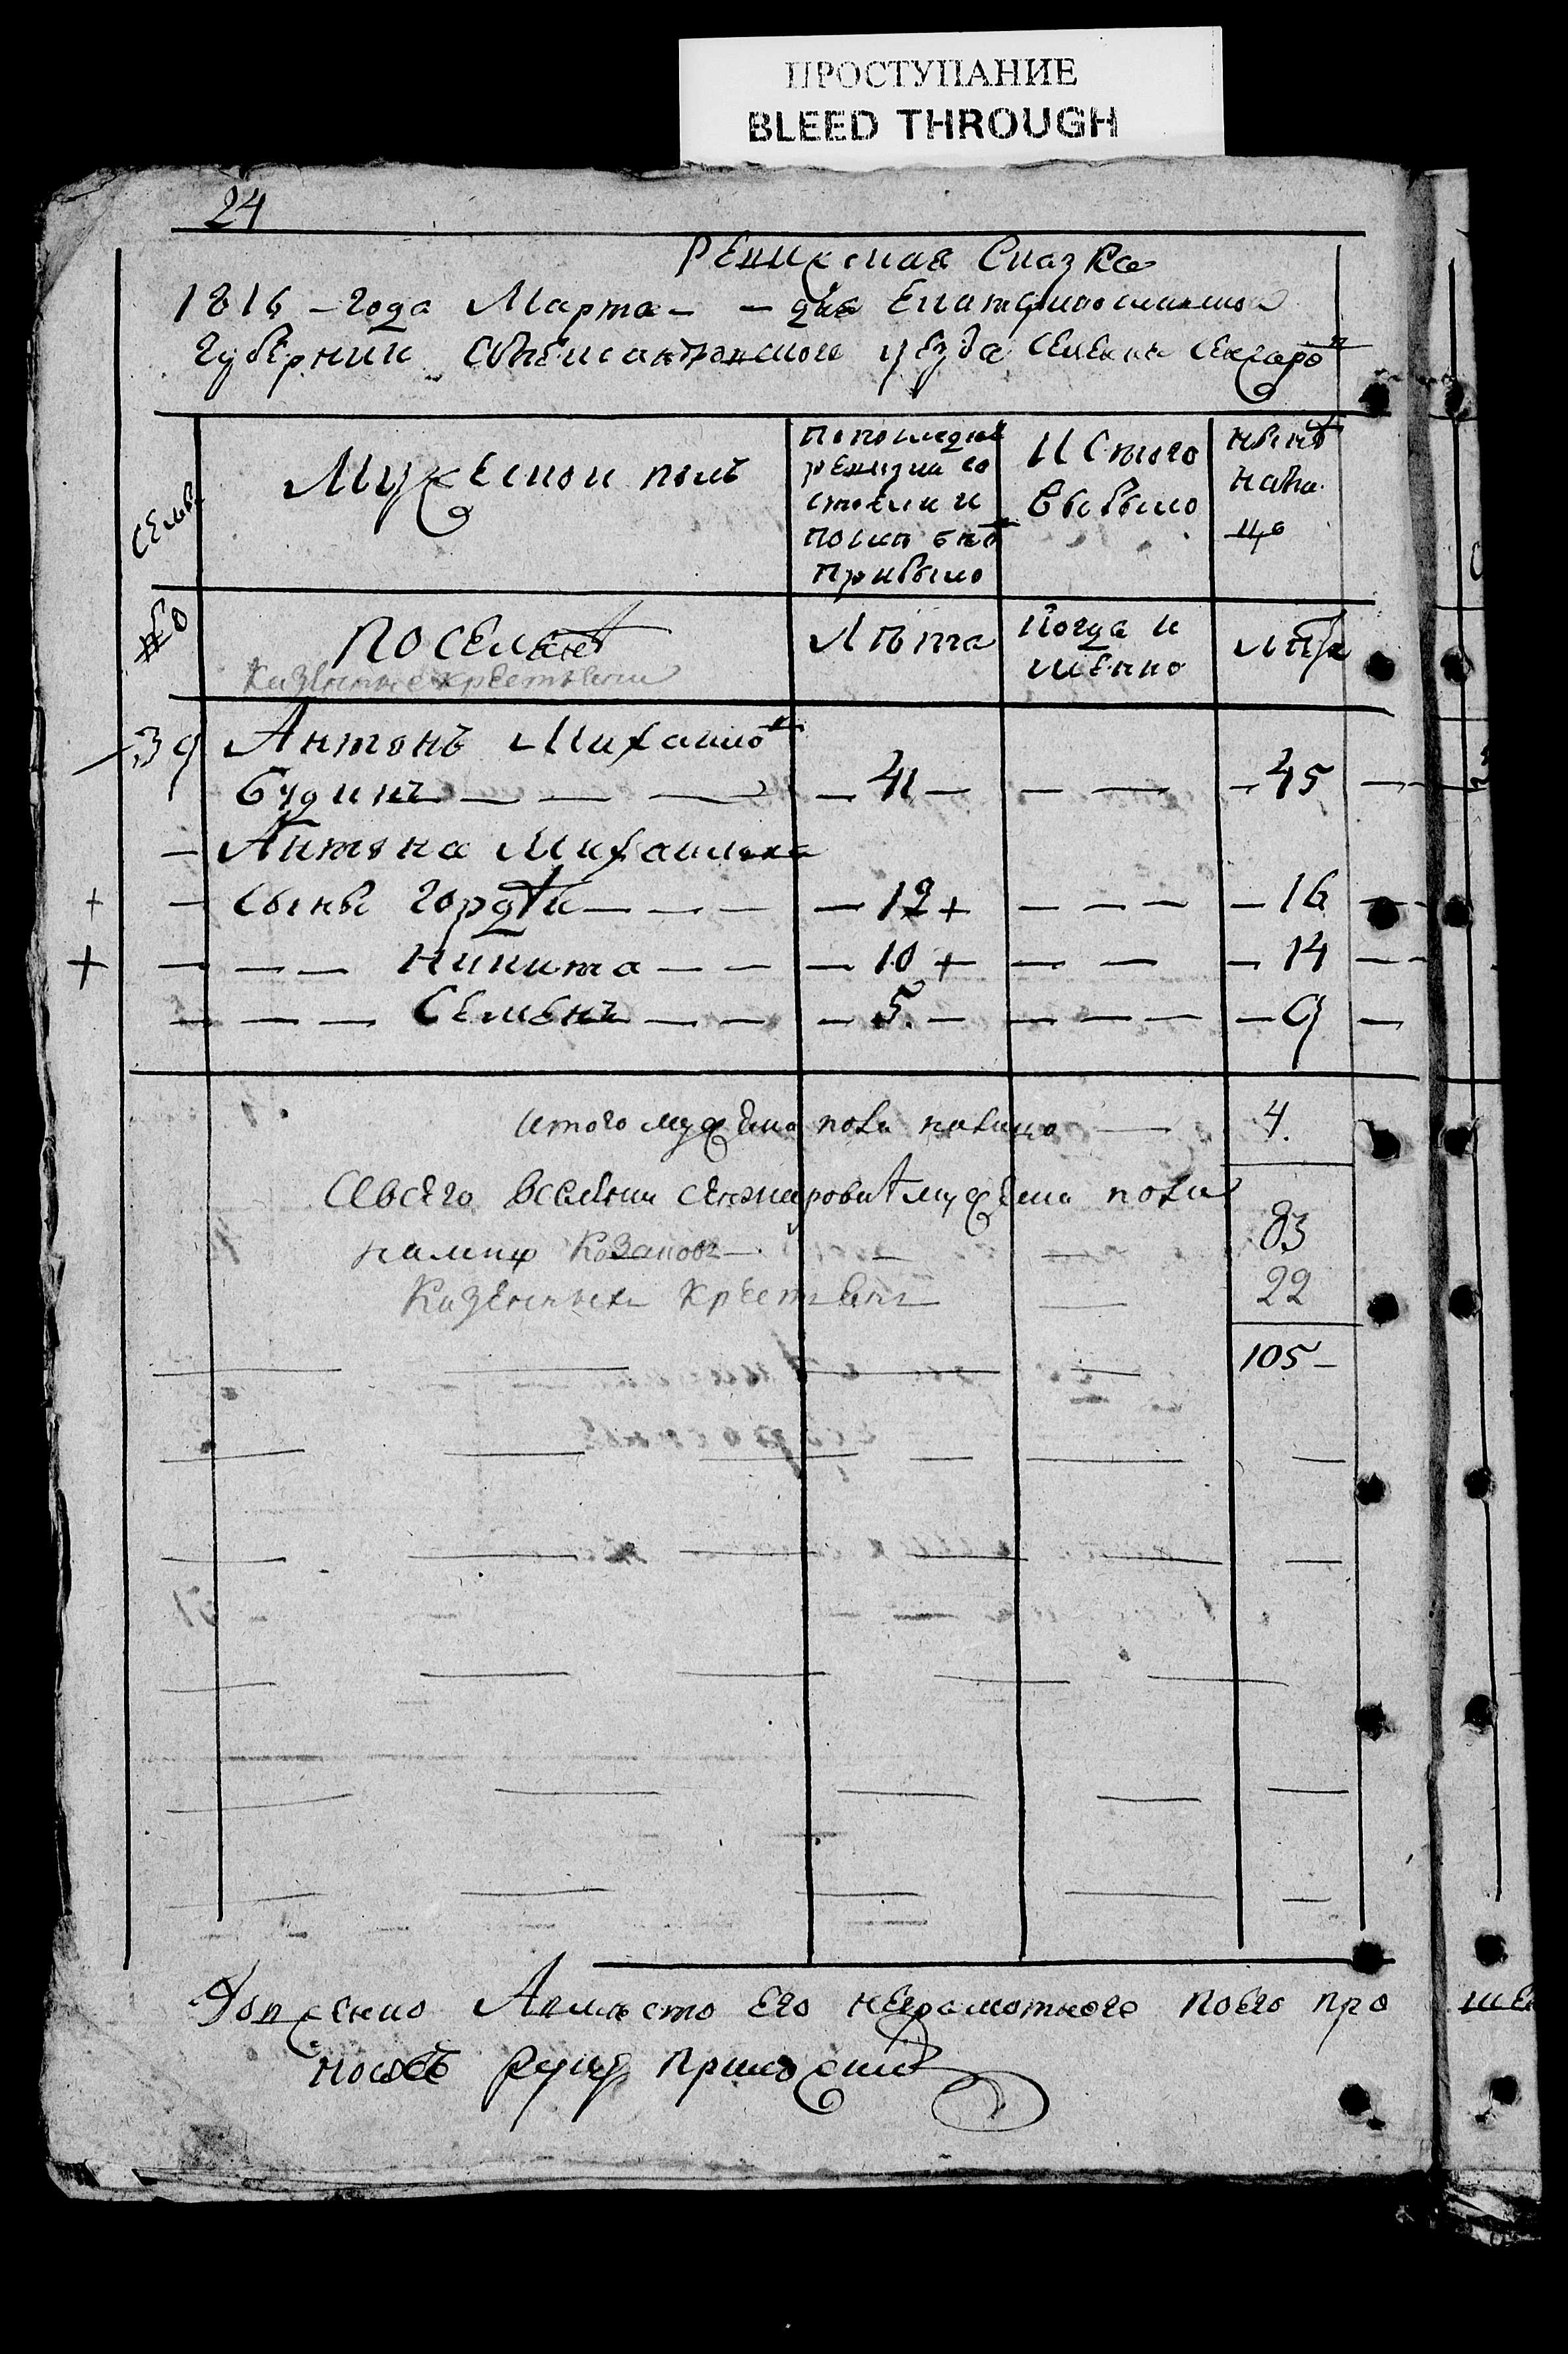 ПРОСТУПАНИЕ
BLEED THROUGH
24
Ревижская Сказка
1816 – года Марта – – дня Екатеринославской
Губернии Александровского уезда селения
Семьи
Мужескои полъ
По последней
ревизии со
стояли и
после онѣ
прибыло
Ис того
выбыло
нынѣ
на ли
цо
№о
поселянѣ
Казенные крестьяни
Лѣта
Когда и
имянно
лѣта
39 Антонъ Михаиловъ
Будинъ – – – – 41 – – – – 45 –
– Антона Михаилова
+ – сынъ Гордѣи – – – – 12 + – – – – 16 –
+ – – – Никита – – – 10 + – – – 14 – –
– – – Семенъ – – – 5. – – – – – 9 –
итого мужеска пола налицо – 4.
А всего в селении мужеска пола
налицо Козаковъ – – 83
Казенныхъ Крестьянъ – 22
105 –
Долженко А вместо его неграмотного по его про
руку приложилъ